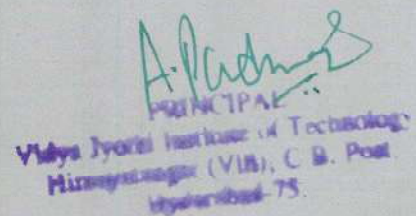 A. Padma
PRINCIPAL
Vidya Jyothi Institute of Technology
(Vill), C. B. Post
Hyderabad-75.